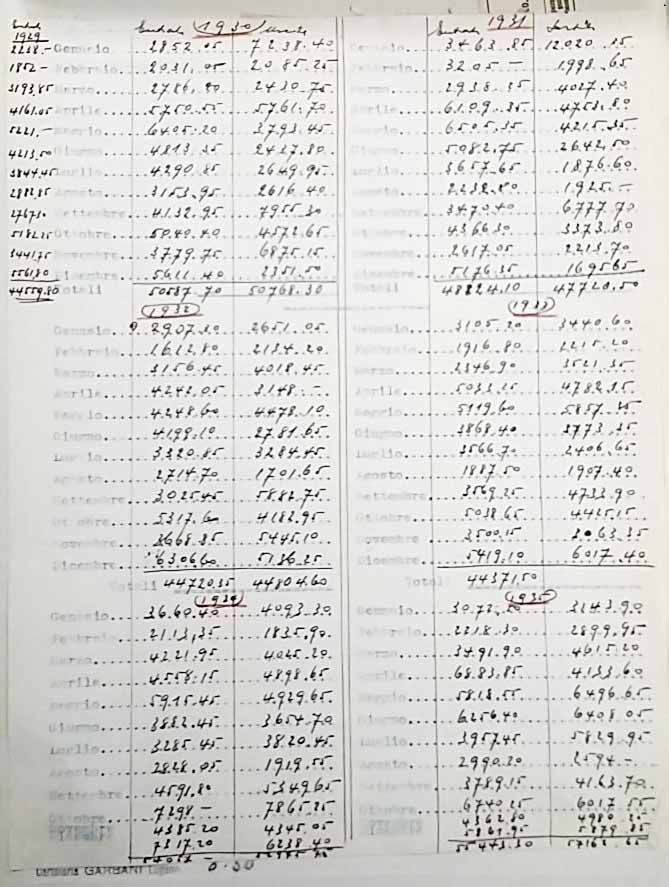 Entrate
1929
2238.-
1852-
3193.85
4161.05
5221.-
4213.50
3844.45
2882.85
2767.30
5182.25
3441.75
5561.80
44559.80
Entrate 1930 Uscite
Gennaio 2852.05 7238.40
Febbraio 2031.05 2085.25
Marzo 2786.80 2430.75
Aprile 5750.55 5761.70
Maggio 6405.20 3793.45
Giugno 4813.35 2437.80
Luglio 4290.85 2649.95
Agosto 3153.95 2616.40
Settembre 4132.95 7955.30
Ottobre 5040.40 4572.65
Novembre 3779.75 6875.15
Dicembre 5611.40 2351.50
Totali 50587.70 50768.30
Entrate 1931
Gennaio 3463.85 12020.25
Febbraio 3205.- 1998.65
Marzo 2938.35 4027.40
Aprile 6109.35 4753.80
Maggio 6505.35 4215.35
Giugno 5082.75 2642.50
Luglio 3657.65 1876.60
Agosto 2232.80 1925.-
Settembre 3470.40 6777.70
Ottobre 4366.30 3373.80
Novembre 2617.05 2213.70
Dicembre 5176.35 1695.65
Totali 48224.10 47720.50
1932
Gennaio 2907.30 2651.05
Febbraio 1612.80 2134.20
Marzo 3156.45 4018.45
Aprile 4242.05 3148.-
Maggio 4248.60 4478.10
Giugno 4199.10 2781.65
Luglio 3320.85 3284.45
Agosto 2714.70 1701.65
Settembre 3025.45 5882.75
Ottobre 5317.60 4182.95
Novembre 3668.85 5445.10
Dicembre 6306.60 5136.35
Totali 44720.35 44804.60
1933
Gennaio 3105.20 3440.60
Febbraio 1916.80 2215.20
Marzo 2346.90 3521.35
Aprile 5033.15 4782.25
Maggio 5119.60 5857.35
Giugno 3868.40 2773.35
Luglio 3566.70 2406.65
Agosto 1887.50 1907.40
Settembre 3569.25 4733.90
Ottobre 5038.65 4425.15
Novembre 3500.15
Dicembre 5419.10 6017.40
Totali 44371.50
1934
Gennaio 3660.40 4093.30
Febbraio 2113.35 1835.90
Marzo 4221.95 4025.20
Aprile 4558.15 4898.65
Maggio 5915.45 4929.65
Giugno 3882.45 3654.70
Luglio 3285.45 3820.45
Agosto 2828.05 1919.55
Settembre 4591.80 5349.65
Ottobre 7298.- 7865.25
4385.20 4345.05
7317.20 6238.40
1935
Gennaio 3143.90
Febbraio 2218.30 2899.95
Marzo 3491.90 4615.20
Aprile 6883.85 4133.60
Maggio 5818.55 6496.65
Giugno 6256.40 6408.05
Luglio 3957.45 5829.95
Agosto 2990.20 2594.-
Settembre 3789.15 4163.70
Ottobre 6740.25 6017.55
4362.80
5861.95 5879.85
55443.30 57162.65
GARBANI